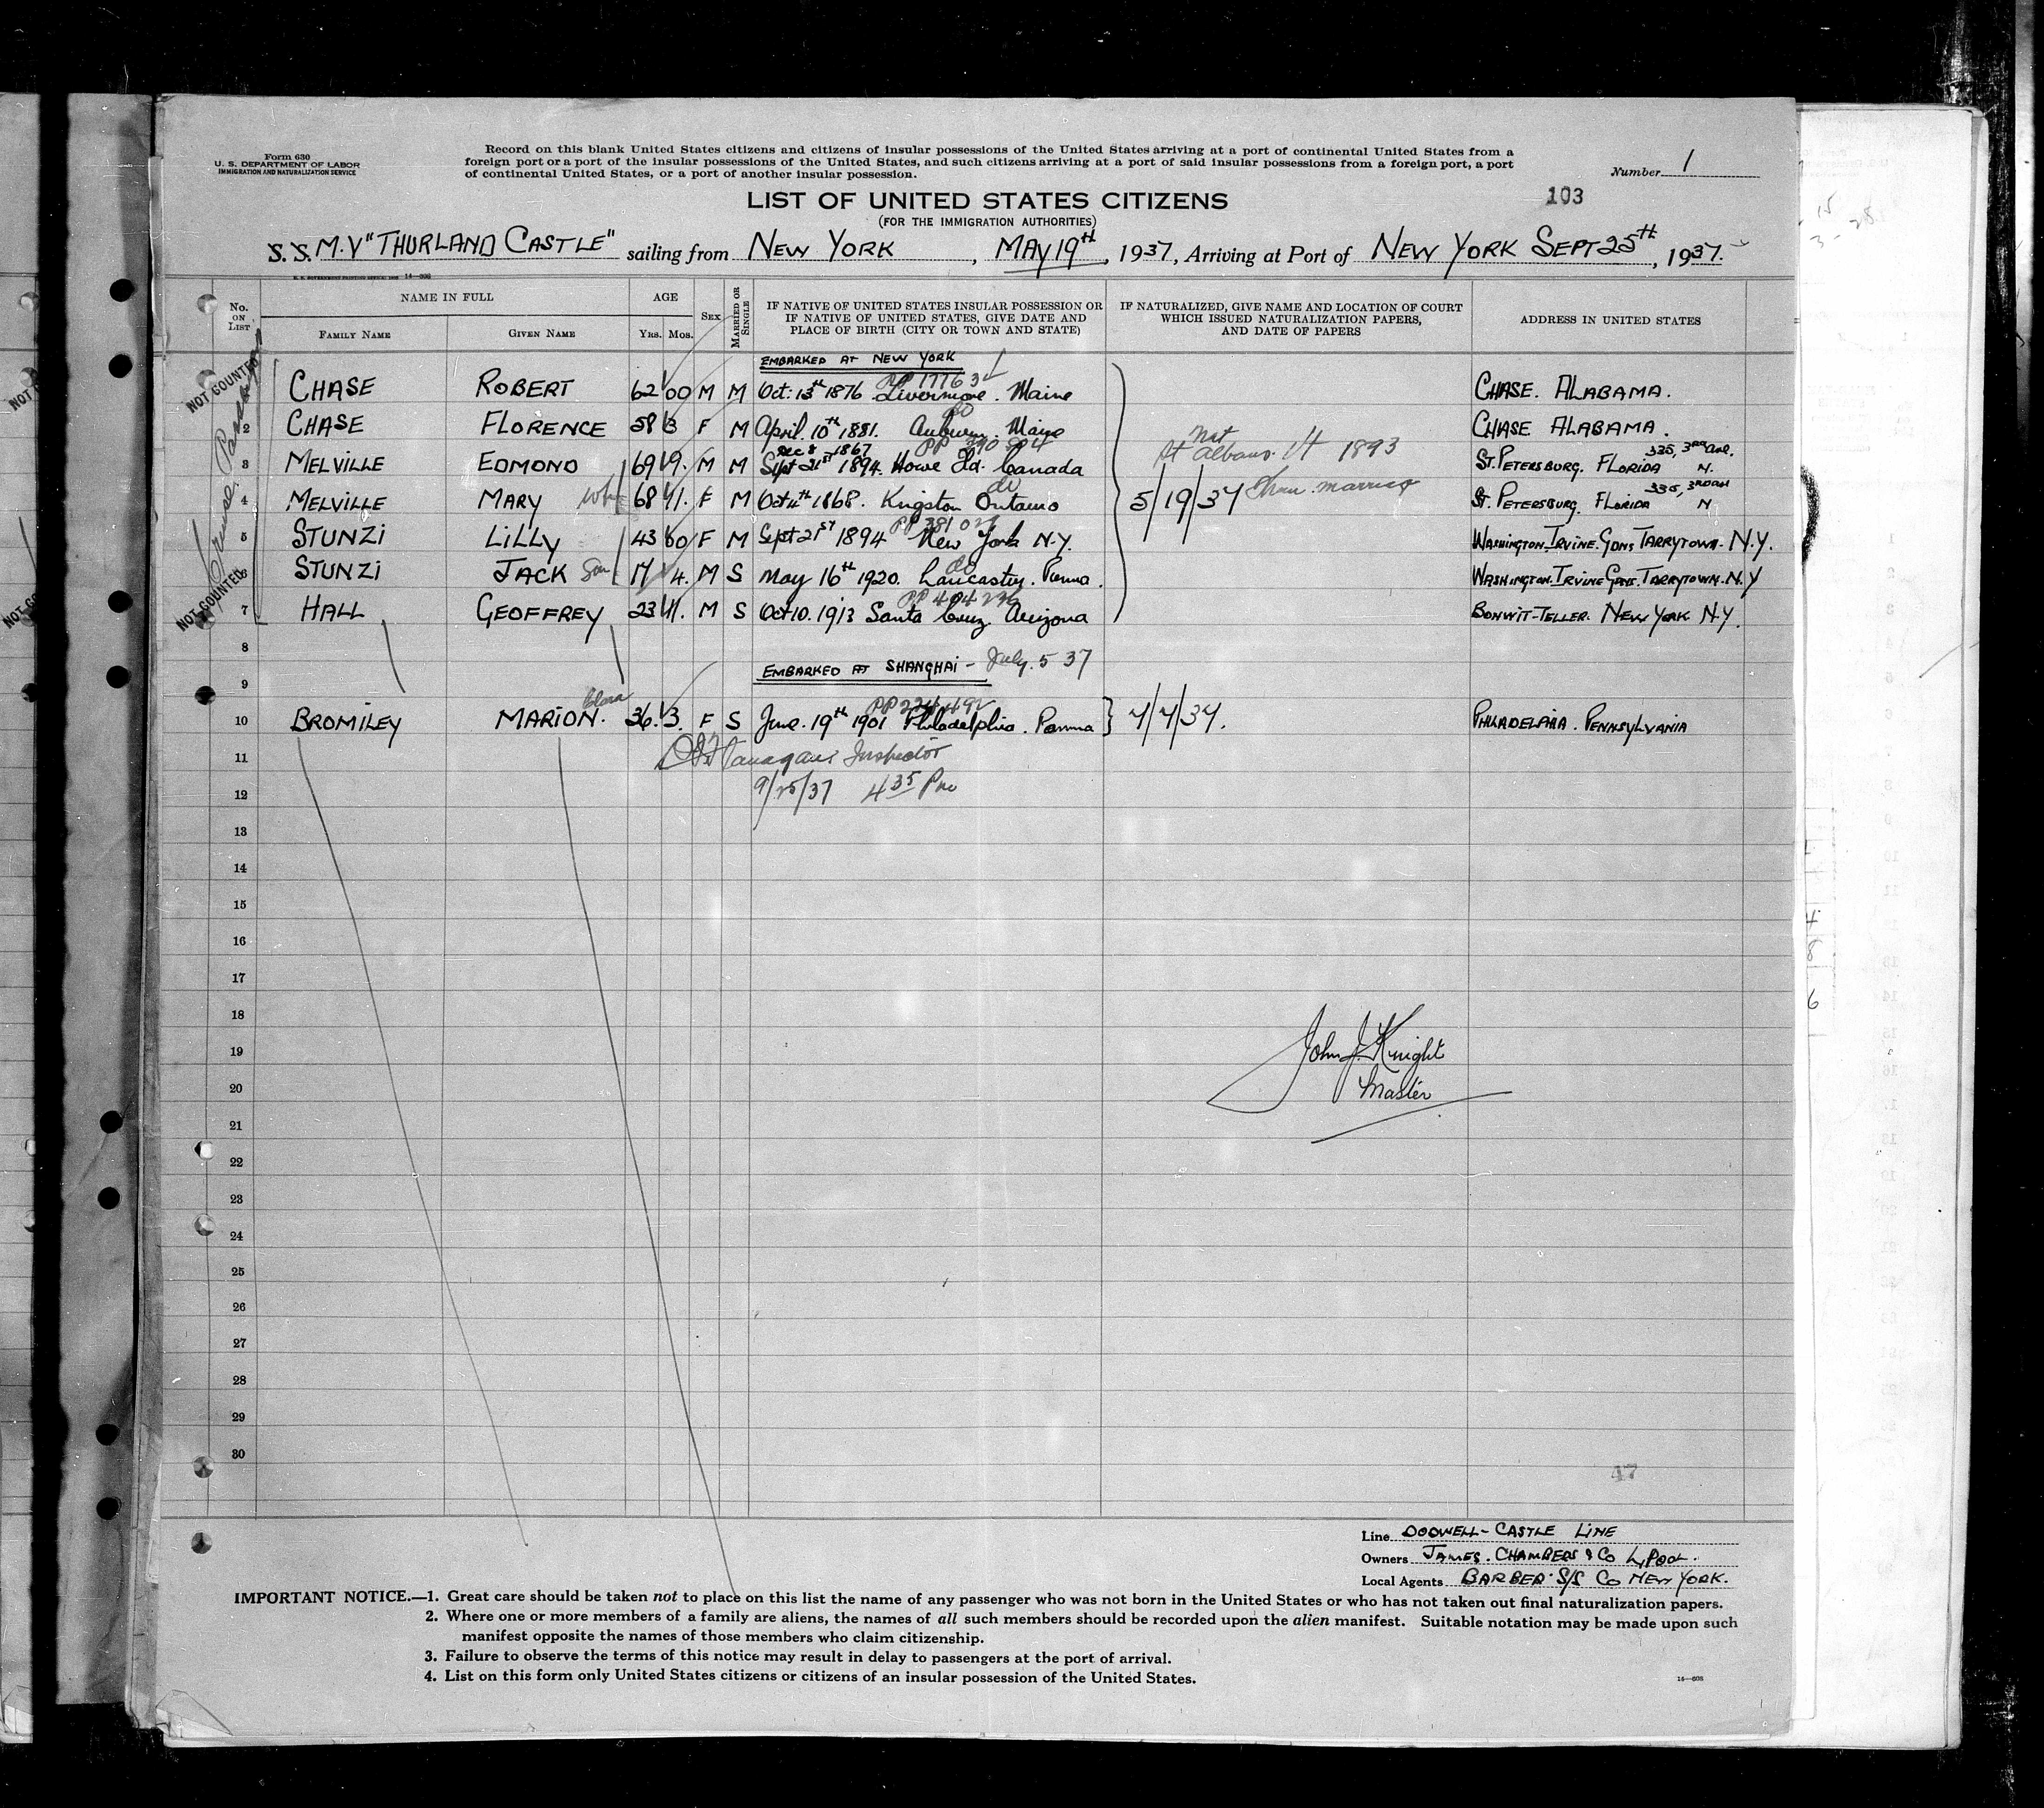 Form 630
U. S. DEPARTMENT OF LABOR
IMMIGRATION AND NATURALIZATION SERVICE
Record on this blank United States citizens and citizens of insular possessions of the United States arriving at a port of continental United States from a
foreign port or a port of the insular possessions of the United States, and such citizens arriving at a port of said insular possessions from a foreign port, a port
of continental United States, or a port of another insular possession.
Number 1
103
LIST OF UNITED STATES CITIZENS
(FOR THE IMMIGRATION AUTHORITIES)
S. S. M.V "THURLAND CASTLE" sailing from NEW YORK, MAY 19th, 1937, Arriving at Port of NEW YORK SEPT 25th, 1937.
No. ON LIST
NAME IN FULL
FAMILY NAME
GIVEN NAME
AGE
Yrs. Mos.
SEX
MARRIED OR SINGLE
IF NATIVE OF UNITED STATES INSULAR POSSESSION OR
IF NATIVE OF UNITED STATES, GIVE DATE AND
PLACE OF BIRTH (CITY OR TOWN AND STATE)
IF NATURALIZED, GIVE NAME AND LOCATION OF COURT
WHICH ISSUED NATURALIZATION PAPERS,
AND DATE OF PAPERS
ADDRESS IN UNITED STATES
NOT COUNTED
EMBARKED AT NEW YORK
CHASE ROBERT 62 00 M M Oct: 13th 1876 Livermore. Maine CHASE. ALABAMA.
do
2 CHASE FLORENCE 58 3 F M April. 10th 1881. Auburn. Maine CHASE ALABAMA.
Dec 8 1867
Nat
St Albans. Vt 1893
335, 3rd AVE.
3 MELVILLE EDMOND 69 9. M M Sept 21st 1894. Howe Id. Canada ST. PETERSBURG. FLORIDA N.
do
335, 3RD AVE
4 MELVILLE MARY Wife 68 11. F M Oct 4th 1868. Kingston Ontario 5/19/37 Thru. marriage ST. PETERSBURG. FLORIDA N
5 STUNZI LILLY 43 00 F M Sept 21st 1894 New York N.Y. WASHINGTON. IRVINE. GDNS TARRYTOWN. N.Y.
do
6 STUNZI JACK Son 17 4. M S May 16th 1920. Lancaster. Penna. WASHINGTON. IRVINE GDNS. TARRYTOWN. N.Y
7 HALL GEOFFREY 23 11. M S Oct 10. 1913 Santa Cruz. Arizona BONWIT-TELLER. NEW YORK N.Y.
NOT COUNTED
8
EMBARKED AT SHANGHAI - July. 5 37
9
Clara
10 BROMILEY MARION. 36. 3. F S June. 19th 1901 Philadelphia. Penna 7/7/37. PHILADELPHIA. PENNSYLVANIA
11 Inspector
12 9/25/37 4 35 Pm
13
14
15
16
17
18
19 John J. Knight
20 Master
21
22
23
24
25
26
27
28
29
30
47
Line DODWELL-CASTLE LINE
Owners JAMES. CHAMBERS & Co L'POOL.
Local Agents BARBER S/S Co NEW YORK.
IMPORTANT NOTICE.—1. Great care should be taken not to place on this list the name of any passenger who was not born in the United States or who has not taken out final naturalization papers.
2. Where one or more members of a family are aliens, the names of all such members should be recorded upon the alien manifest. Suitable notation may be made upon such
manifest opposite the names of those members who claim citizenship.
3. Failure to observe the terms of this notice may result in delay to passengers at the port of arrival.
4. List on this form only United States citizens or citizens of an insular possession of the United States.